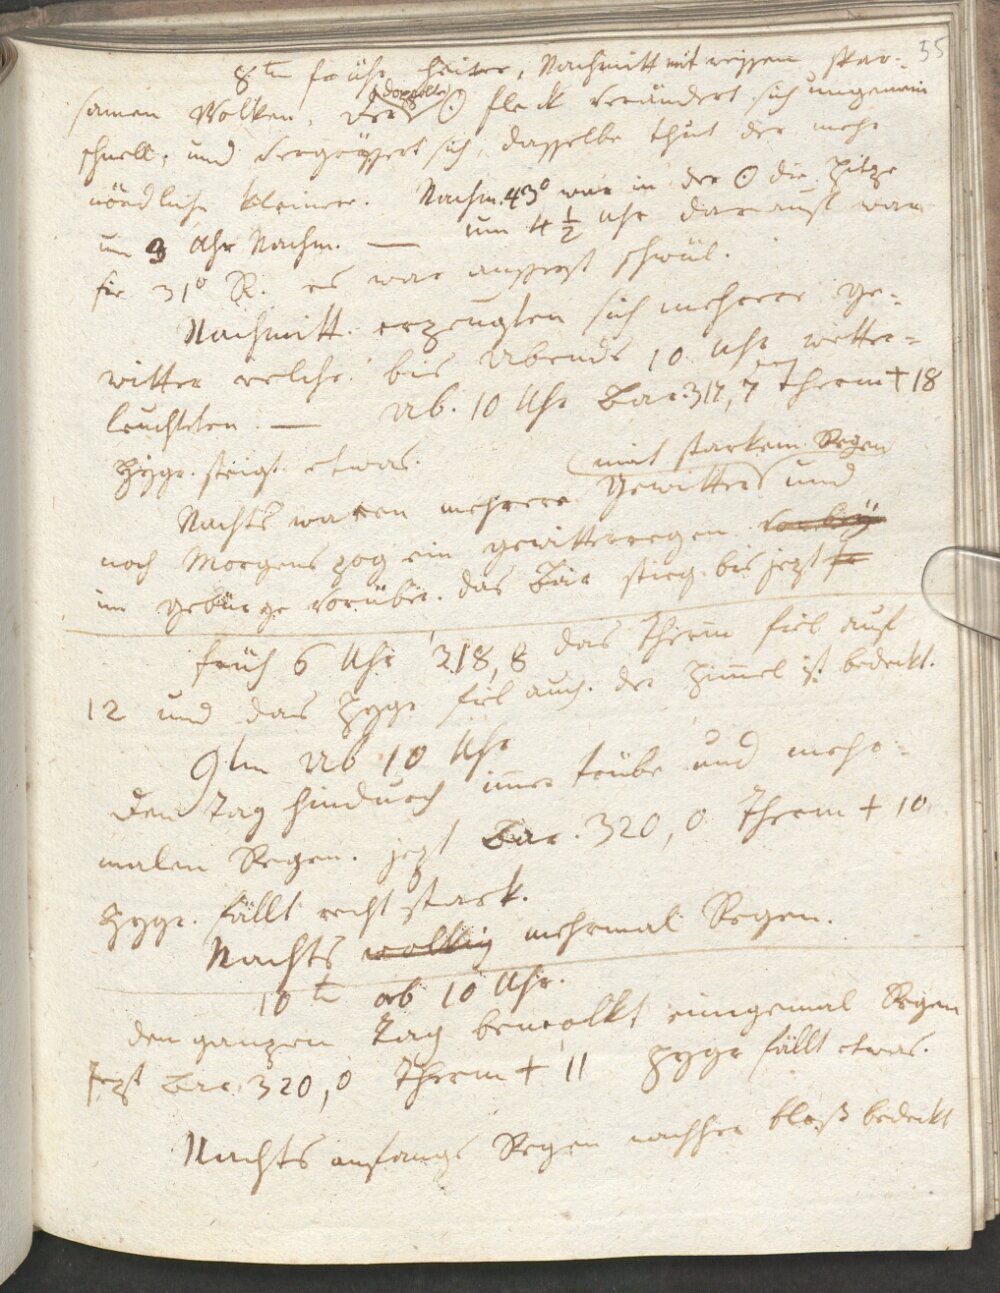 55
8ᵗᵉⁿ früh heiter, Nachmitt mit weissen spar-
samen Wolken. Der doppelte ☉ fleck verändert sich ungemein
schnell, und vergrössert sich, dasselbe thut der mehr
nördliche kleinere. Nachm. 43° war in der ☉ die Hitze
um 3 Uhr Nachm. — um 4 ½ Uhr darauf war
sie 31° R. es war äusserst schwül.
Nachmitt. erzeugten sich mehrere Ge-
witter welche bis Abends 10 Uhr wetter-
leuchteten. — Ab. 10 Uhr Bar. 317,7 Therm + 18
Hygr. steigt etwas.
mit starkem Regen
Nachts waren mehrere Gewitter und
noch Morgens zog ein gewitterregen vorbey
im gebürge vorüber. das Bar stieg bis jezt
früh 6 Uhr 318,8 das Therm fiel auf
12 und das Hygr fiel auch. der Himmel ist bedeckt.
9ᵗᵉⁿ Ab 10 Uhr
den Tag hindurch immer trübe und mehr-
malen Regen. jezt Bar. 320,0 Therm + 10
Hygr. fällt recht stark.
Nachts wolkig mehrmal Regen.
10ᵗ ab 10 Uhr.
den ganzen Tag bewölkt einigemal Regen
Jezt Bar. 320,0 Therm + 11 Hygr fällt etwas.
Nachts anfangs Regen nachher bloß bedeckt